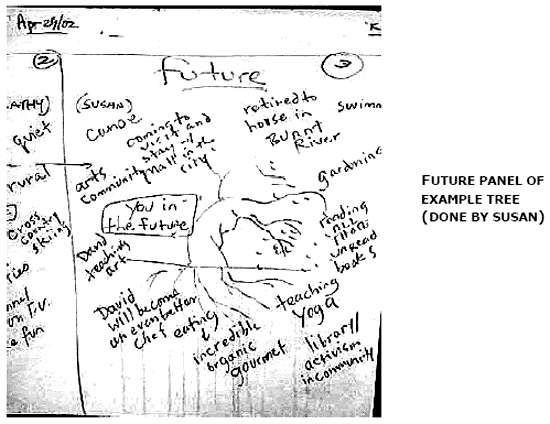 Apr 29/02
"K
②
③
future
ATHY)
quiet
rural
cross
country
skiing
on T.V.
fun
(SUSAN)
canoe
coming to
visit and
stay
in the
city
arts
community
retired to
house in
Burnt
River
swimm
gardening
you in
the future
David
teaching
art
reading
all
those
unread
books
etc
David
will become
an even better
chef eating
&
incredible
organic
gourmet
teaching
yoga
library/
activism
in community
FUTURE PANEL OF
EXAMPLE TREE
(DONE BY SUSAN)